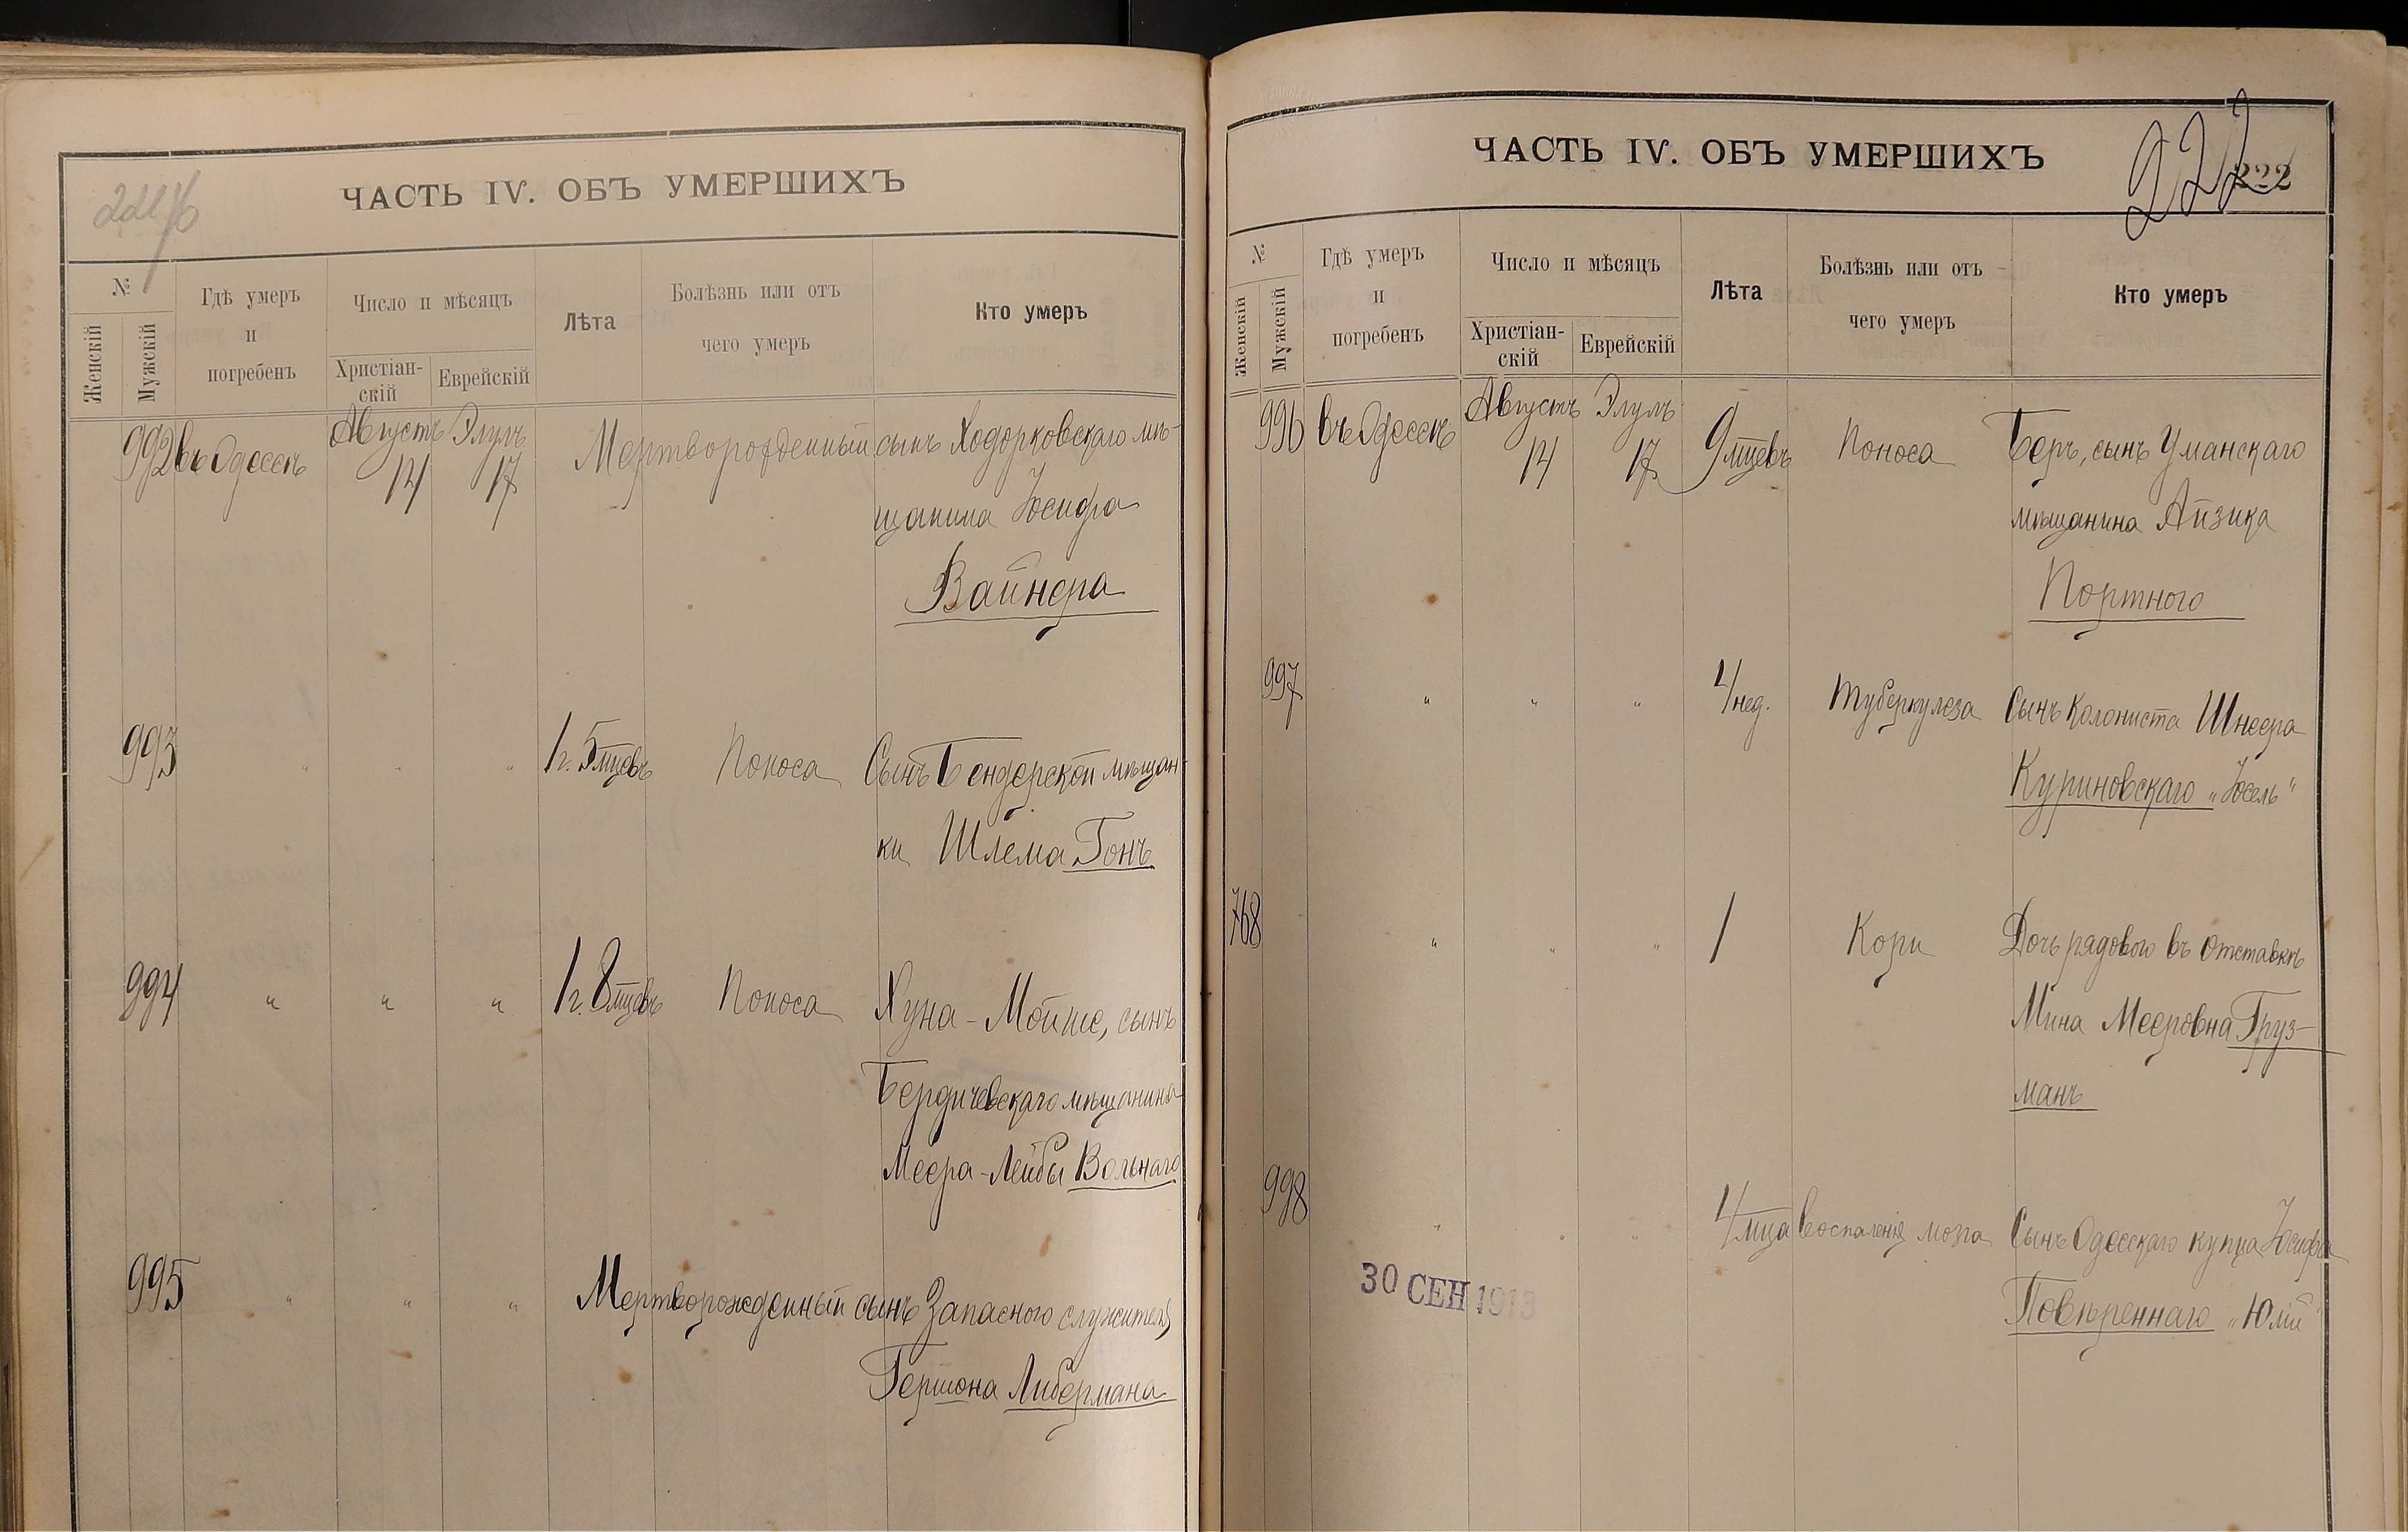 221 об
ЧАСТЬ IV. ОБЪ УМЕРШИХЪ
№
Женскій
Мужскій
Гдѣ умеръ
и
погребенъ
Число и мѣсяцъ
Христіан-
скій
Еврейскій
Лѣта
Болѣзнь или отъ
чего умеръ
Кто умеръ
992 въ Одессѣ Августъ 14 Элулъ 17 Мертворожденный сынъ Ходорковскаго мѣ-
щанина Іосифа
Вайнера
993 " " " 1 г. 5 мцевъ Поноса Сынъ Бендерской мѣщан-
ки Шлема Гонъ
994 " " " 1 г. 8 мцевъ Поноса Хуна-Мойше, сынъ
Бердичевскаго мѣщанина
Меера-Лейбы Вольнаго
995 " " " Мертворожденный сынъ Запасного служителя
Гершона Либермана
ЧАСТЬ IV. ОБЪ УМЕРШИХЪ
222
222
№
Женскій
Мужскій
Гдѣ умеръ
и
погребенъ
Число и мѣсяцъ
Христіан-
скій
Еврейскій
Лѣта
Болѣзнь или отъ
чего умеръ
Кто умеръ
996 въ Одессѣ Августъ 14 Элулъ 17 9 мцевъ Поноса Беръ, сынъ Уманскаго
мѣщанина Айзика
Портного
997 " " " нед. Туберкулеза Сынъ колониста Шнеера
Куриновскаго „Іосель"
768 " " " 1 Кори Дочь рядового въ отставкѣ
Мина Мееровна Груз-
манъ
998 " " " мца Воспаленія мозга Сынъ Одесскаго купца Іосифа
Повѣреннаго „Юлій"
30 СЕН 1913